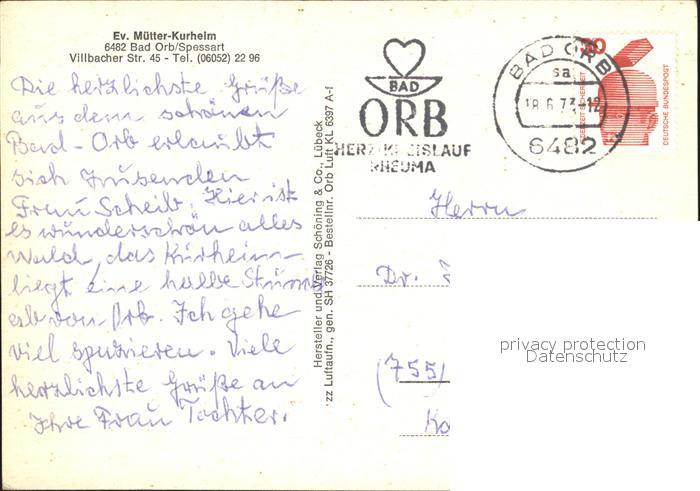 Ev. Mütter-Kurheim
6482 Bad Orb/Spessart
Villbacher Str. 45 - Tel. (06052) 22 96
Die herzlichste Grüße
aus dem schönen
Bad-Orb erlaubt
sich zusenden
Frau Scheib. Hier ist
es wunderschön alles
Wald, das Kurheim
liegt eine halbe Stunde
ab von Orb. Ich gehe
viel spazieren. Viele
herzlichste Grüße an
Ihre Frau Tochter.
Hersteller und Verlag Schöning & Co., Lübeck
zz Luftaufn., gen. SH 37726 - Bestellnr. Orb Luft KL 6397 A-f
BAD
ORB
HERZ KREISLAUF
RHEUMA
BAD ORB
sa
18.6.73-12
6482
DEUTSCHE BUNDESPOST
Herrn
Dr.
(755)
Ko
privacy protection
Datenschutz